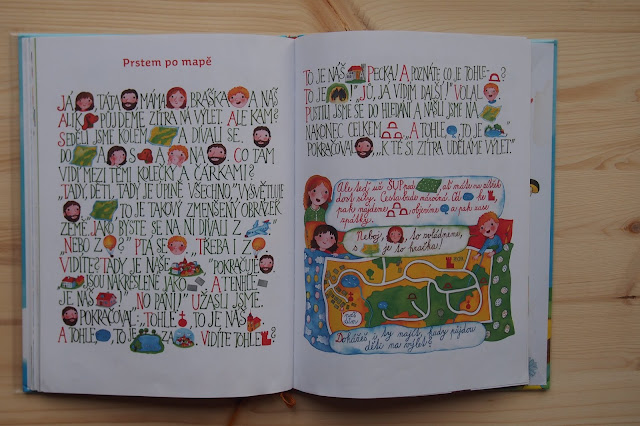 Prstem po mapě
JÁ, TÁTA, MÁMA, BRÁŠKA A NÁŠ
ALÍK PŮJDEME ZÍTRA NA VÝLET. ALE KAM?
SEDĚLI JSME KOLEM A DÍVALI SE.
DO A S A. CO TAM
VIDÍ MEZI TĚMI KOLEČKY A ČÁRKAMI?
„TADY, DĚTI, TADY JE ÚPLNĚ VŠECHNO,“ VYSVĚTLUJE
„TO JE TAKOVÝ ZMENŠENÝ OBRÁZEK
ZEMĚ. JAKO BYSTE SE NA NI DÍVALI Z
„NEBO Z?“ PTÁ SE. „TŘEBA I Z
VIDÍTE? TADY JE NAŠE“ POKRAČUJE
JSOU NAKRESLENÉ JAKO A TENHLE
JE NÁŠ „NO PÁNI!“ UŽASLI JSME.
POKRAČOVAL: „TOHLE, TO JE NÁŠ
A TOHLE, TO JE ZA. VIDÍTE TOHLE?
TO JE NÁŠ PECKA! A POZNÁTE, CO JE TOHLE?
TO JE!“ „JŮ, JÁ VIDÍM DALŠÍ!“ VOLAL
PUSTILI JSME SE DO HLEDÁNÍ A NAŠLI JSME NA
NAKONEC CELKEM. „A TOHLE, TO JE,“
POKRAČOVAL, „K TÉ SI ZÍTRA UDĚLÁME VÝLET.“
Ale teď už SUP na, ať máte na zítřek
dost síly. Cesta bude náročná. Od ke
pak najdeme, objevíme a pak zase
zpátky.
Neboj, to zvládneme,
s je to hračka!
náš
dům
Dokážeš i ty najít, kudy půjdou
děti na výlet?